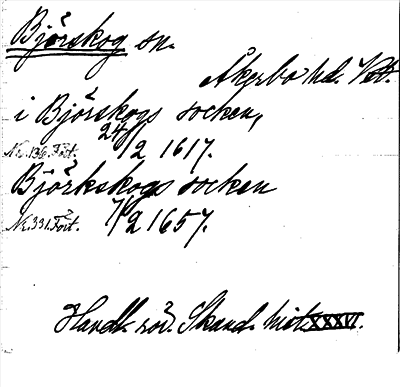 Björskog sn.
Åkerbo hd. Vstl.
i Björskogs socken,
N:o 136. Fört. 24/2 1617.
Björkskogs socken
N:o 331. Fört. 7/2 1657.
Handl. rör. Skand. hist. XXXVI.